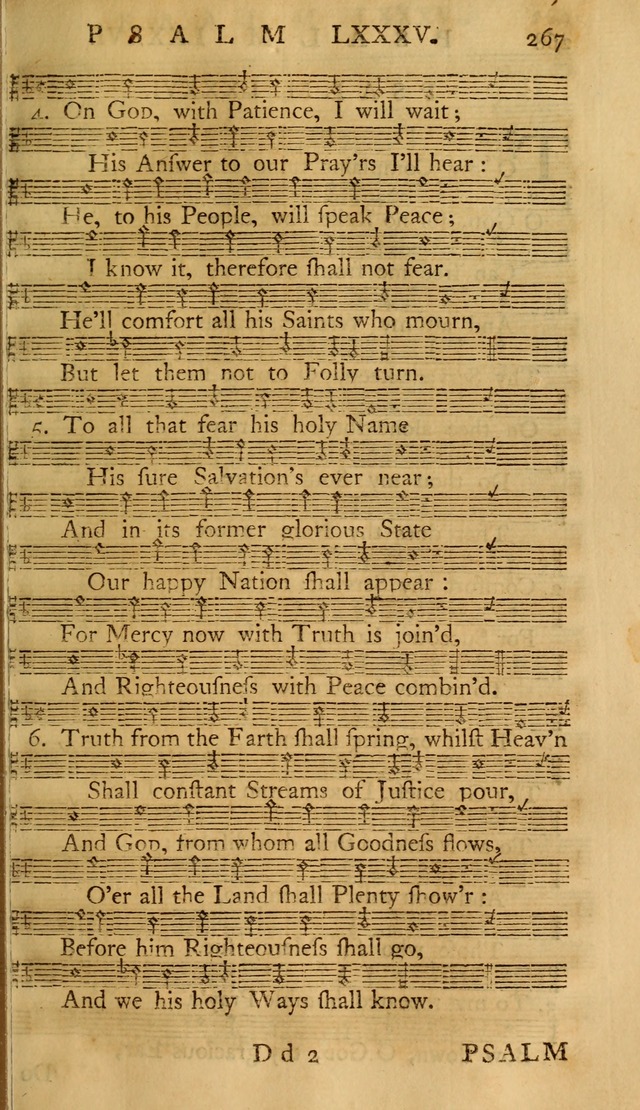 PSALM LXXXV. 267
4. On GOD, with Patience, I will wait;
His Anſwer to our Pray'rs I'll hear:
He, to his People, will ſpeak Peace;
I know it, therefore ſhall not fear.
He'll comfort all his Saints who mourn,
But let them not to Folly turn.
5. To all that fear his holy Name
His ſure Salvation's ever near;
And in its former glorious State
Our happy Nation ſhall appear:
For Mercy now with Truth is join'd,
And Righteouſneſs with Peace combin'd.
6. Truth from the Earth ſhall ſpring, whilſt Heav'n
Shall conſtant Streams of Juſtice pour,
And GOD, from whom all Goodneſs flows,
O'er all the Land ſhall Plenty ſhow'r:
Before him Righteouſneſs ſhall go,
And we his holy Ways ſhall know.
D d 2 PSALM